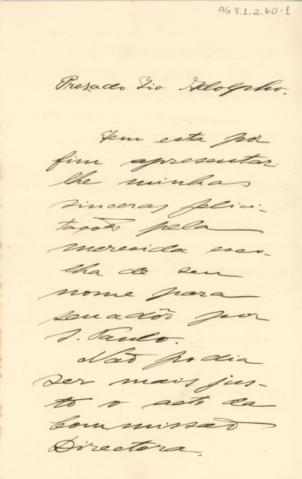 AG 3.1.2.60-1
Prezado Tio Adolpho.
Tem esta por
fim apresentar
lhe minhas
sinceras felici-
tações pela
merecida esco-
lha de seu
nome para
senador por
S. Paulo.
Não podia
ser mais jus-
to o acto da
Commissão
Directora.